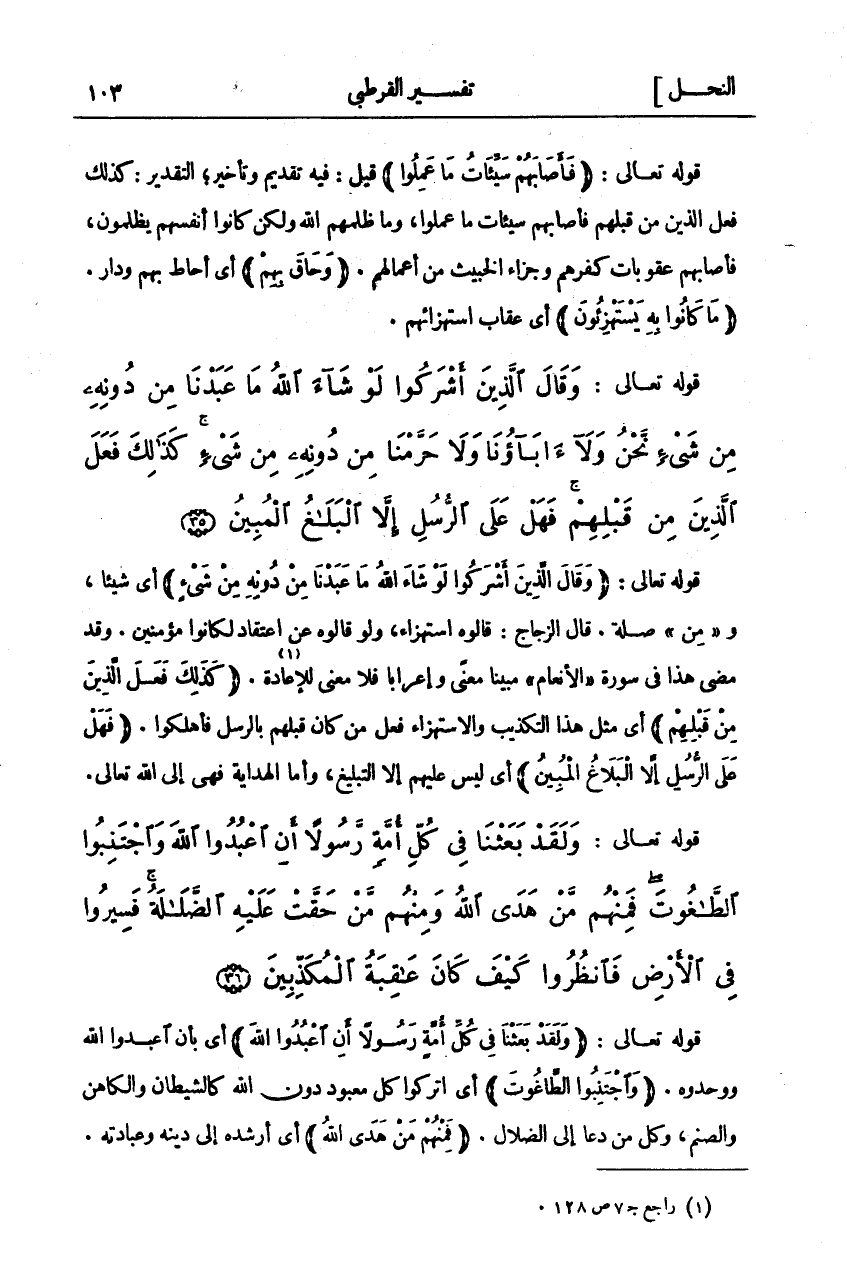 النحل] تفسير القرطبى ١٠٣
قوله تعالى : ﴿ فَأَصَابَهُمْ سَيِّئَاتُ مَا عَمِلُوا ﴾ قيل : فيه تقديم وتأخير؛ التقدير : كذلك
فعل الذين من قبلهم فأصابهم سيئات ما عملوا، وما ظلمهم الله ولكن كانوا أنفسهم يظلمون،
فأصابهم عقوبات كفرهم وجزاء الخبيث من أعمالهم . ﴿ وَحَاقَ بِهِمْ ﴾ أى أحاط بهم ودار .
﴿ مَا كَانُوا بِهِ يَسْتَهْزِئُونَ ﴾ أى عقاب استهزائهم .
قوله تعالى : وَقَالَ ٱلَّذِينَ أَشْرَكُوا لَوْ شَآءَ ٱللَّهُ مَا عَبَدْنَا مِن دُونِهِۦ
مِن شَىْءٍ نَّحْنُ وَلَآ ءَابَآؤُنَا وَلَا حَرَّمْنَا مِن دُونِهِۦ مِن شَىْءٍ ۚ كَذَٰلِكَ فَعَلَ
ٱلَّذِينَ مِن قَبْلِهِمْ ۚ فَهَلْ عَلَى ٱلرُّسُلِ إِلَّا ٱلْبَلَٰغُ ٱلْمُبِينُ ﴿٣٥﴾
قوله تعالى : ﴿ وَقَالَ الَّذِينَ أَشْرَكُوا لَوْ شَاءَ اللهُ مَا عَبَدْنَا مِنْ دُونِهِ مِنْ شَيْءٍ ﴾ أى شيئا ،
و « مِن » صلة . قال الزجاج : قالوه استهزاء، ولو قالوه عن اعتقاد لكانوا مؤمنين . وقد
مضى هذا فى سورة «الأنعام» مبينا معنًى وإعرابا فلا معنى للإعادة (١) . ﴿ كَذَلِكَ فَعَلَ الَّذِينَ
مِنْ قَبْلِهِمْ ﴾ أى مثل هذا التكذيب والاستهزاء فعل من كان قبلهم بالرسل فأهلكوا . ﴿ فَهَلْ
عَلَى الرُّسُلِ إِلَّا الْبَلَاغُ الْمُبِينُ ﴾ أى ليس عليهم إلا التبليغ، وأما الهداية فهى إلى الله تعالى.
قوله تعالى : وَلَقَدْ بَعَثْنَا فِى كُلِّ أُمَّةٍ رَّسُولًا أَنِ ٱعْبُدُوا ٱللَّهَ وَٱجْتَنِبُوا
ٱلطَّٰغُوتَ ۖ فَمِنْهُم مَّنْ هَدَى ٱللَّهُ وَمِنْهُم مَّنْ حَقَّتْ عَلَيْهِ ٱلضَّلَٰلَةُ ۚ فَسِيرُوا
فِى ٱلْأَرْضِ فَٱنظُرُوا كَيْفَ كَانَ عَٰقِبَةُ ٱلْمُكَذِّبِينَ ﴿٣٦﴾
قوله تعالى : ﴿ وَلَقَدْ بَعَثْنَا فِى كُلِّ أُمَّةٍ رَسُولًا أَنِ ٱعْبُدُوا اللهَ ﴾ أى بأن آعبدوا الله
ووحدوه . ﴿ وَٱجْتَنِبُوا الطَّاغُوتَ ﴾ أى اتركوا كل معبود دون الله كالشيطان والكاهن
والصنم، وكل من دعا إلى الضلال . ﴿ فَمِنْهُمْ مَنْ هَدَى اللهُ ﴾ أى أرشده إلى دينه وعبادته .
(١) راجع ج ٧ ص ١٢٨ .